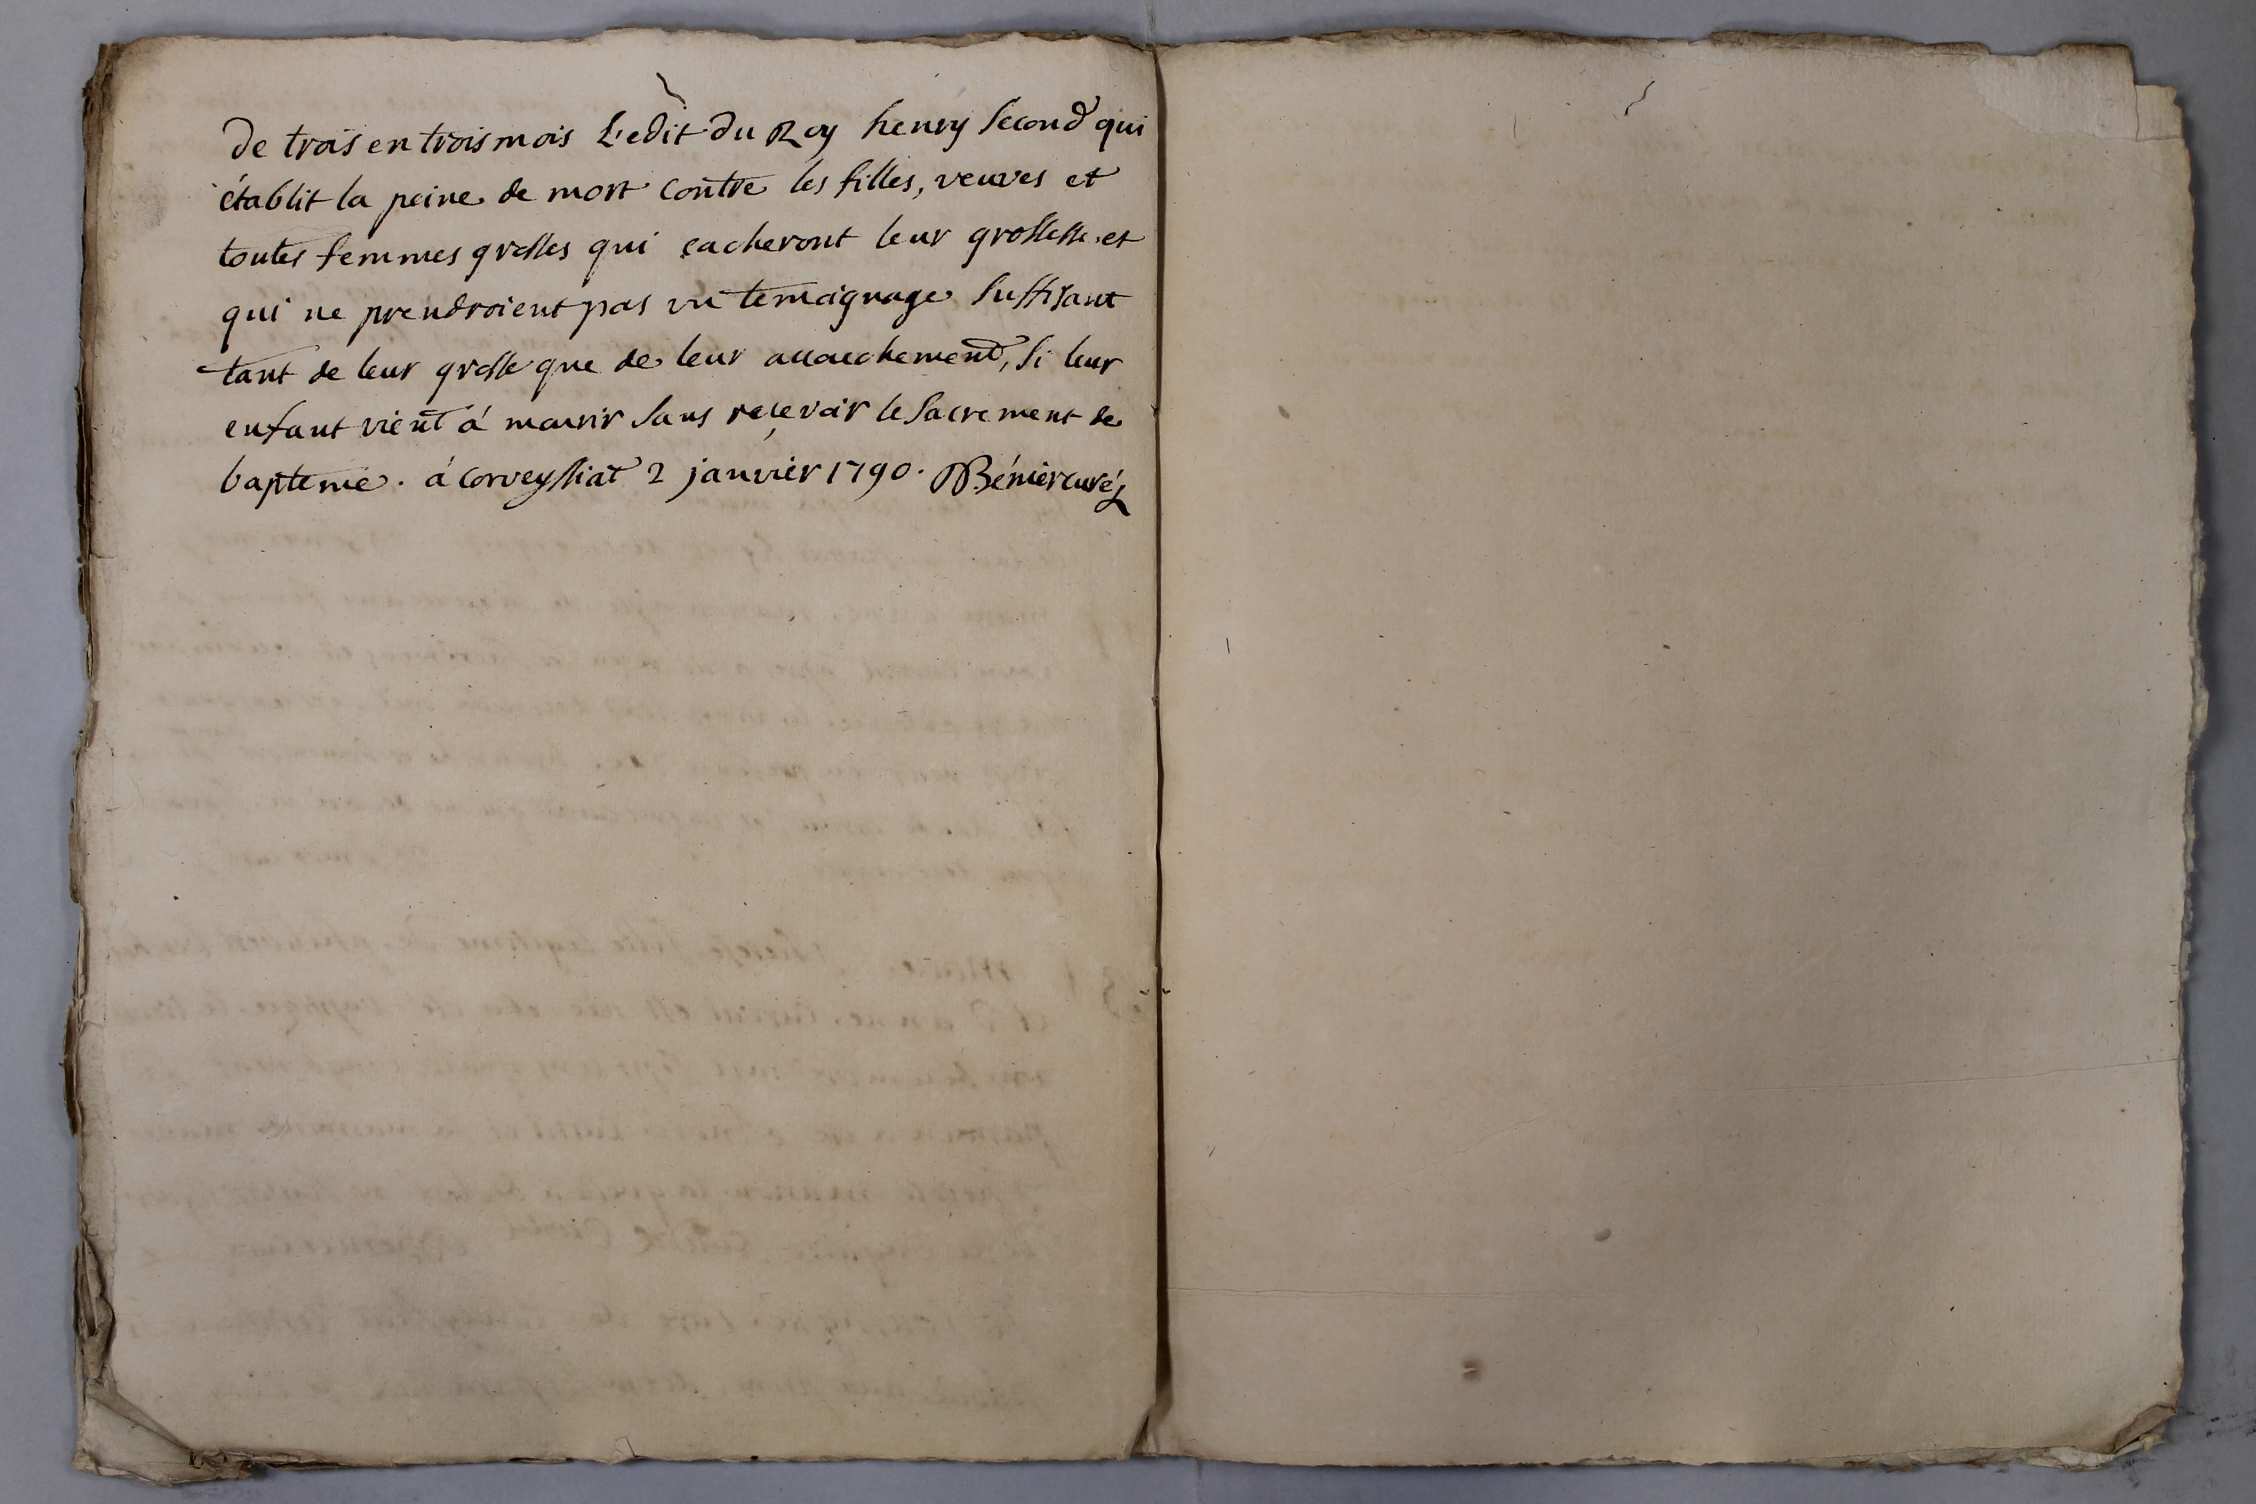 de trois en trois mois L'edit du Roy henry second qui
établit la peine de mort contre les filles, veuves et
toutes femmes grosses qui cacheront leur grossesse et
qui ne prendroient pas un temoignage suffisant
tant de leur grosse que de leur accouchement, si leur
enfant vient á mourir sans reçevoir le sacrement de
bapteme. á Corveyssiat 2 janvier 1790. Bénier curé